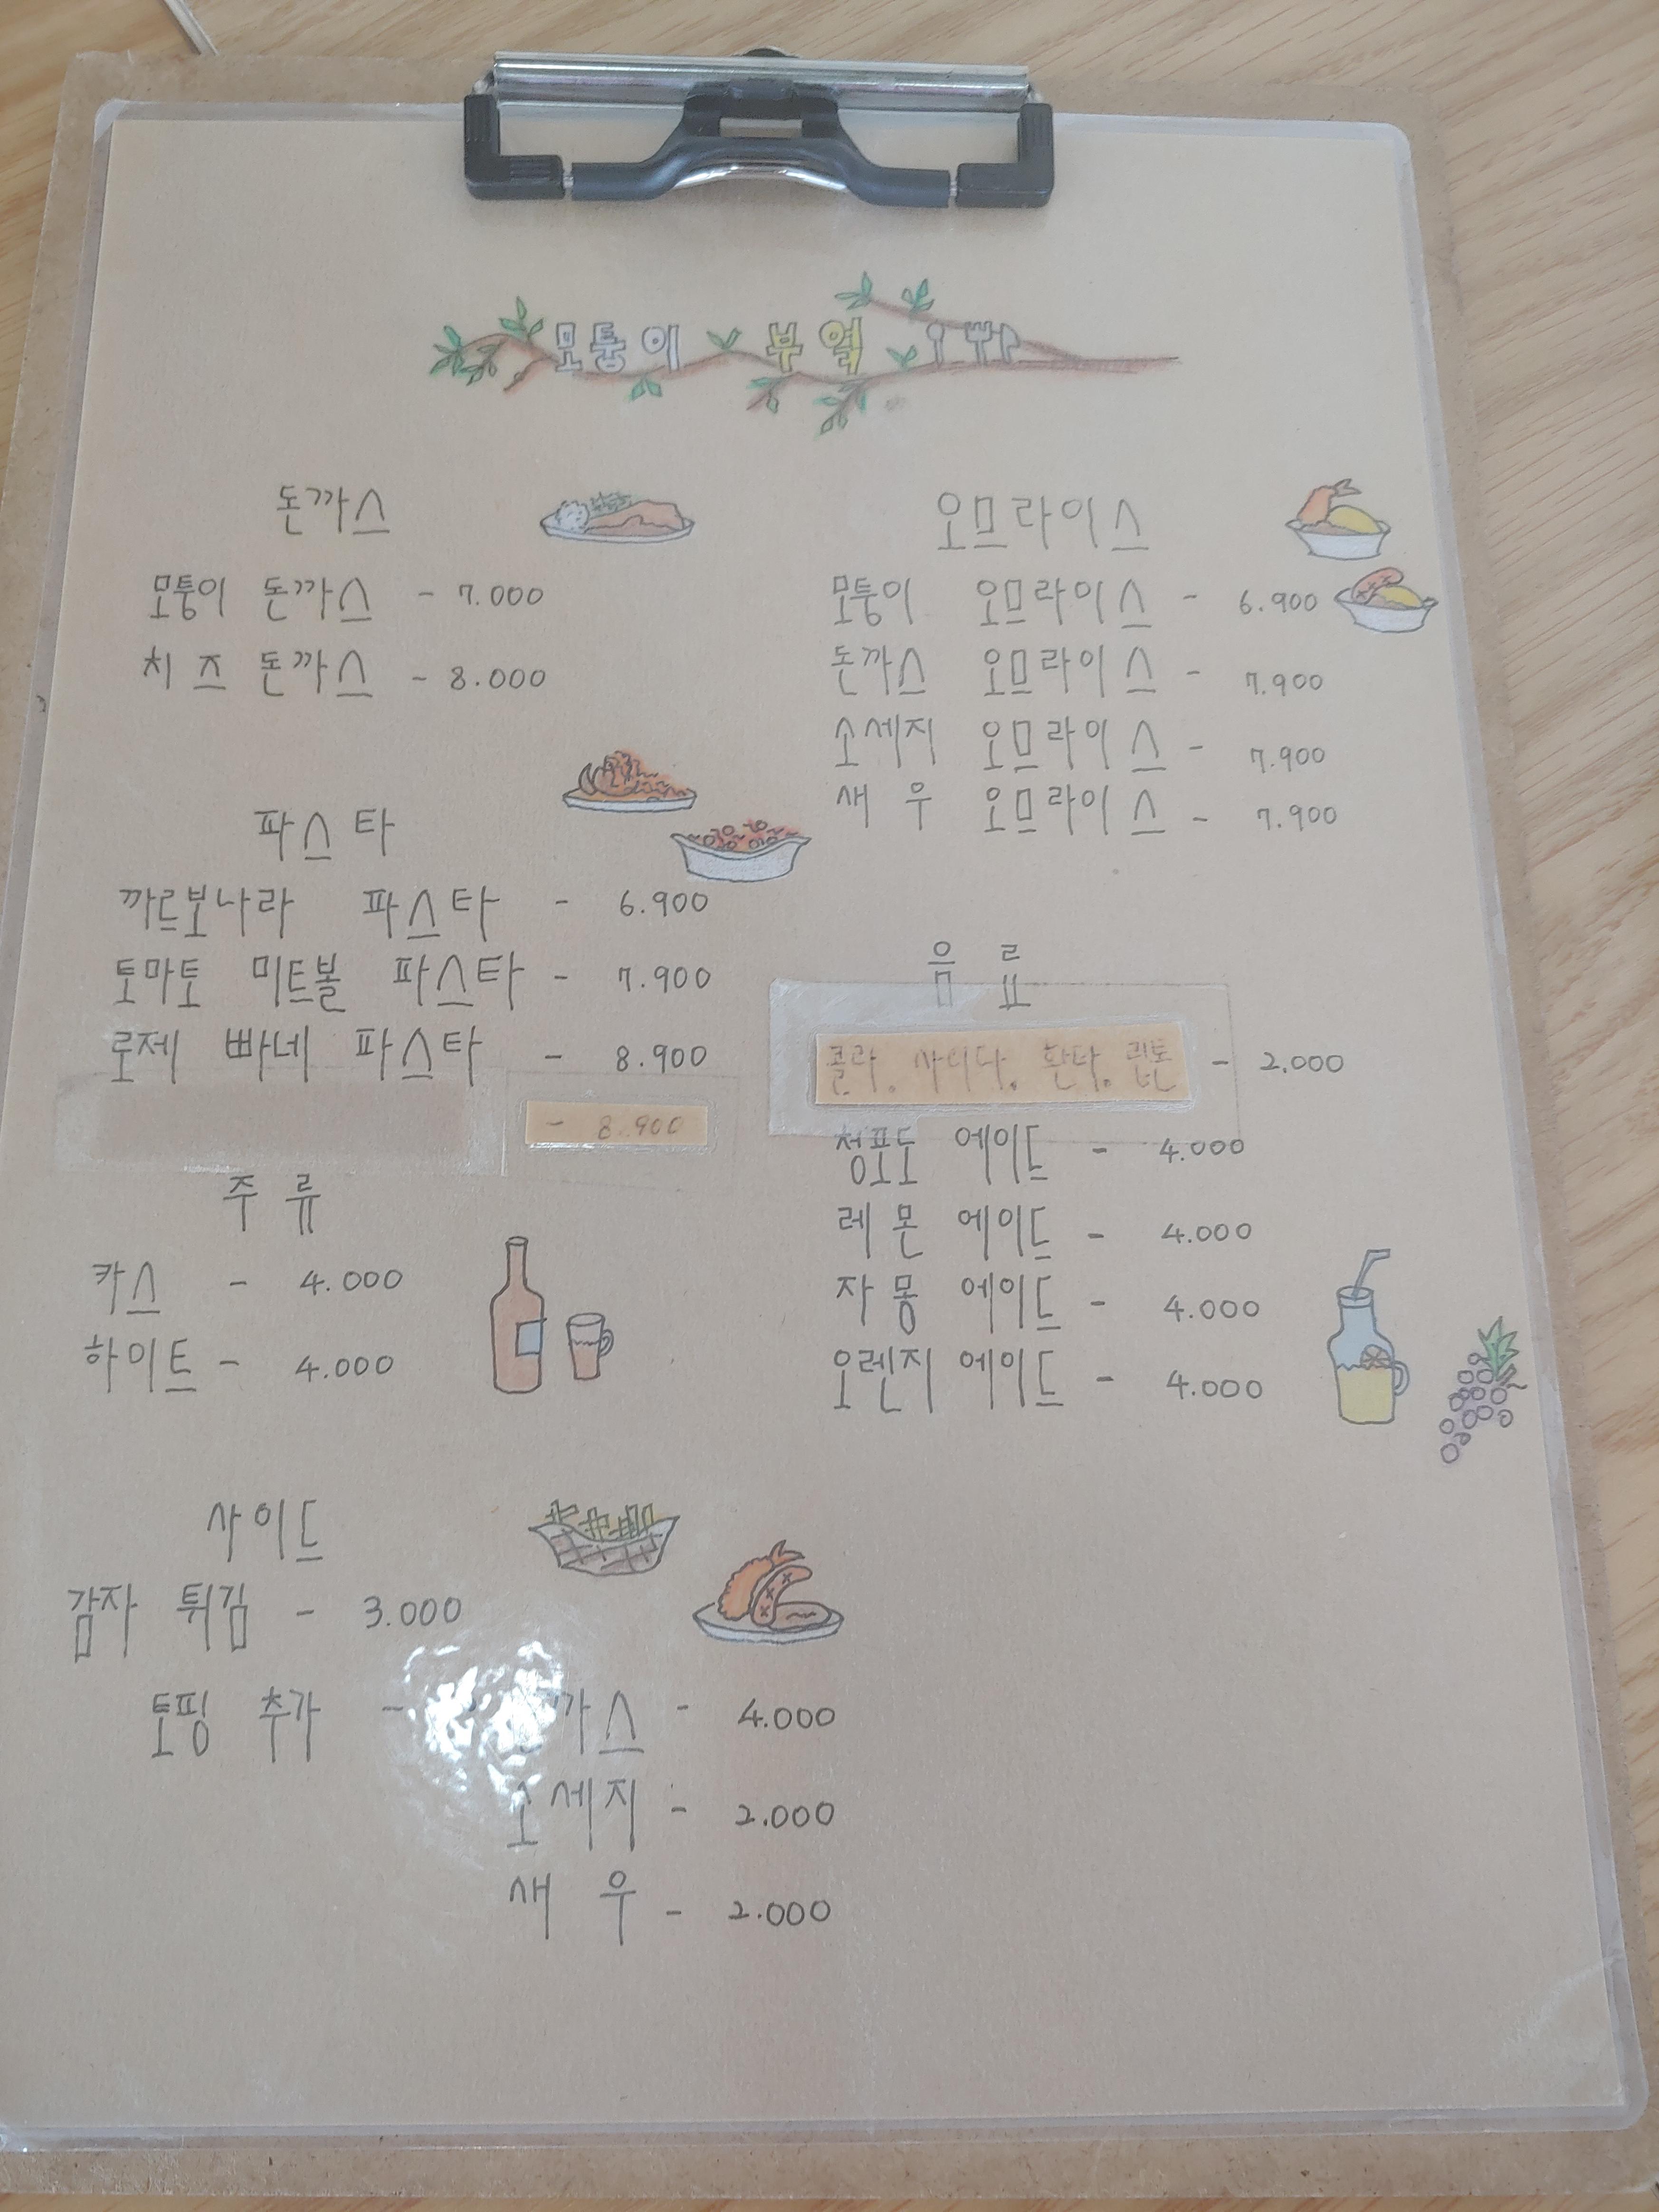 모퉁이 부엌
돈까스
모퉁이 돈까스 - 7.000
치즈 돈까스 - 8.000
파스타
까르보나라 파스타 - 6.900
토마토 미트볼 파스타 - 7.900
로제 빠네 파스타 - 8.900
- 8.900
주류
카스 - 4.000
하이트 - 4.000
사이드
감자 튀김 - 3.000
토핑 추가 - 까스 - 4.000
소세지 - 2.000
새우 - 2.000
오므라이스
모퉁이 오므라이스 - 6.900
돈까스 오므라이스 - 7.900
소세지 오므라이스 - 7.900
새우 오므라이스 - 7.900
음료
콜라. 사이다. 환타. 립톤 - 2.000
청포도 에이드 - 4.000
레몬 에이드 - 4.000
자몽 에이드 - 4.000
오렌지 에이드 - 4.000